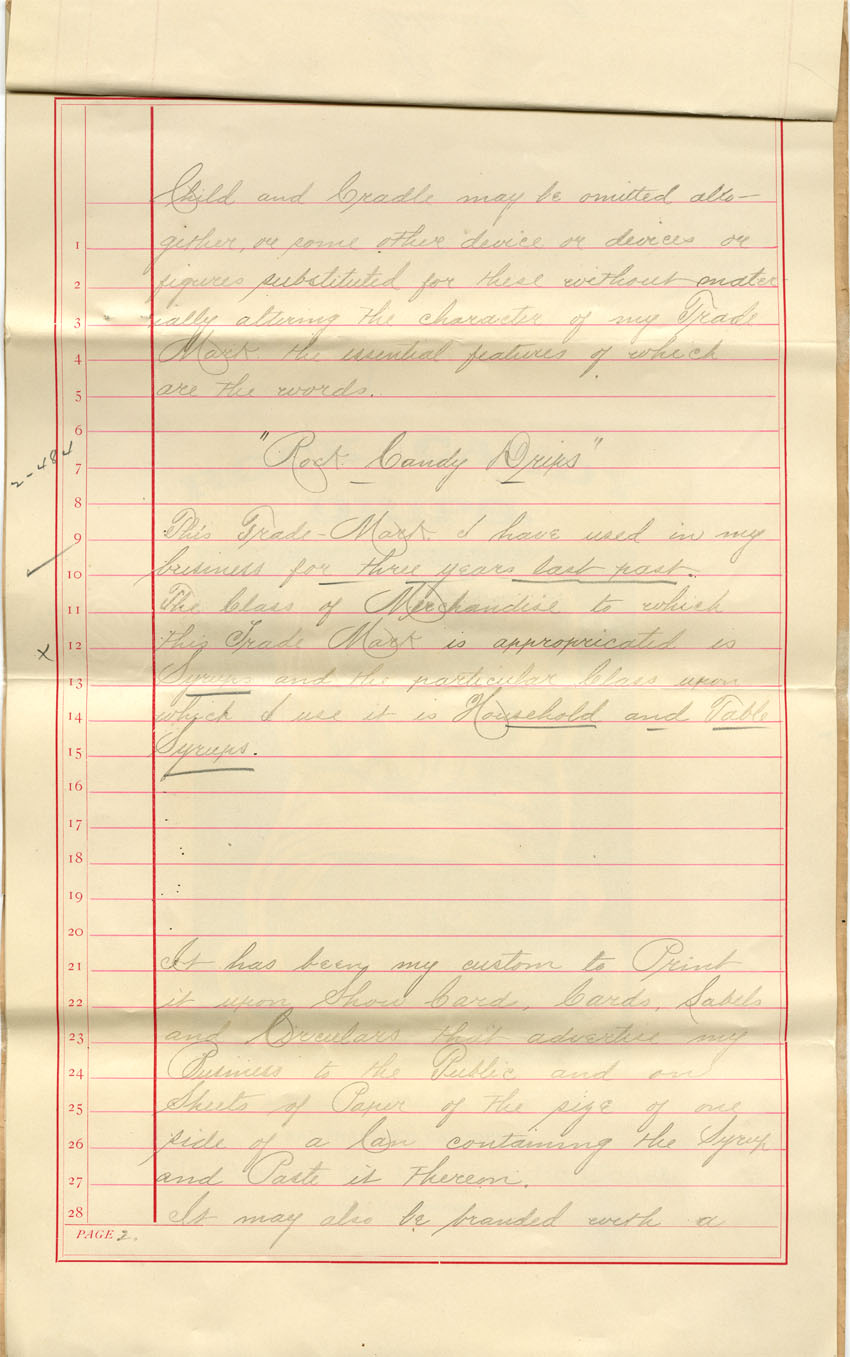 Child and Cradle may be omitted alto-
1 gether, or some other device or devices or
2 figures substituted for these without mater
3 ially altering the character of my Trade
4 Mark the essential features of which
5 are the words.
6
2-484
7 "Rock Candy Drips"
8
9 This Trade-Mark I have used in my
10 business for three years last past.
11 The Class of Merchandise to which
x 12 this Trade Mark is appropricated is
13 Syrups and the particular Class upon
14 which I use it is Household and Table
15 Syrups.
16
17
18
19
20
21 It has been my custom to Print
22 it upon Show Card, Cards, Labels
23 and Circulars that advertise my
24 Business to the Public and on
25 Sheets of Paper of the size of one
26 side of a Can containing the Syrup
27 and Paste it thereon.
28 It may also be branded with a
PAGE 2.